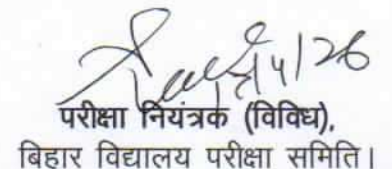 परीक्षा नियंत्रक (विविध),
बिहार विद्यालय परीक्षा समिति।